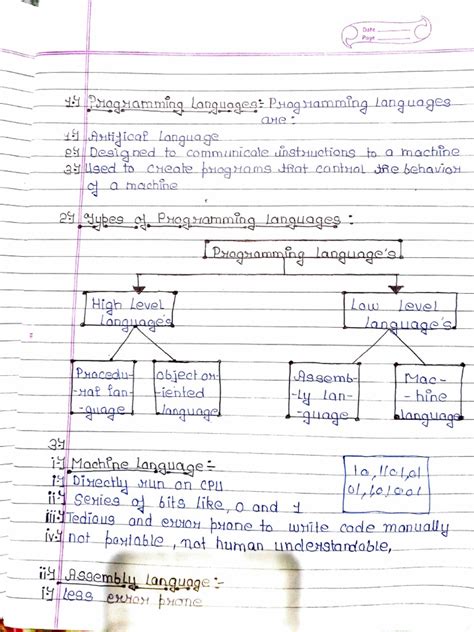 Date
Page
1.) Programming Languages:- Programming languages
are :
1.) Artifical Language
2.) Designed to communicate instructions to a machine
3.) Used to create programs that control the behavior
of a machine
2.) Types of Programming languages :
Programming Language's
High Level
Language's
Low Level
language's
Procedu-
-ral lan-
-guage
object or-
-iented
language
Assemb-
-ly lan-
-guage
Mac-
-hine
language
3.)
i.) Machine Language :-
i.) Directly run on CPU
ii.) Series of bits like, 0 and 1
iii.) Tedious and error prone to write code manually
iv.) not portable, not human understandable,
ii.) Assembly language :-
i.) Less error prone